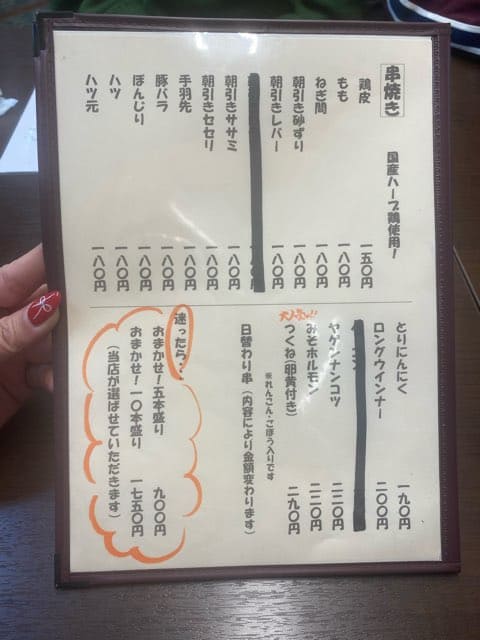 串焼き
国産ハーブ鶏使用!
鶏皮 一五〇円
もも 一八〇円
ねぎ間 一八〇円
朝引き砂ずり 一八〇円
朝引きレバー 一八〇円
朝引きササミ 一八〇円
朝引きセセリ 一八〇円
手羽先 一八〇円
豚バラ 一八〇円
ぼんじり 一八〇円
ハツ 一八〇円
ハツ元 一八〇円
とりにんにく 一九〇円
ロングウインナー 二〇〇円
ヤゲンナンコツ 二二〇円
みそホルモン 二二〇円
大人気!!
つくね(卵黄付き) 一九〇円
※れんこん・ごぼう入りです
日替わり串(内容により金額変わります)
迷ったら・・
おまかせ!五本盛り 九〇〇円
おまかせ!一〇本盛り 一七五〇円
(当店が選ばせていただきます)